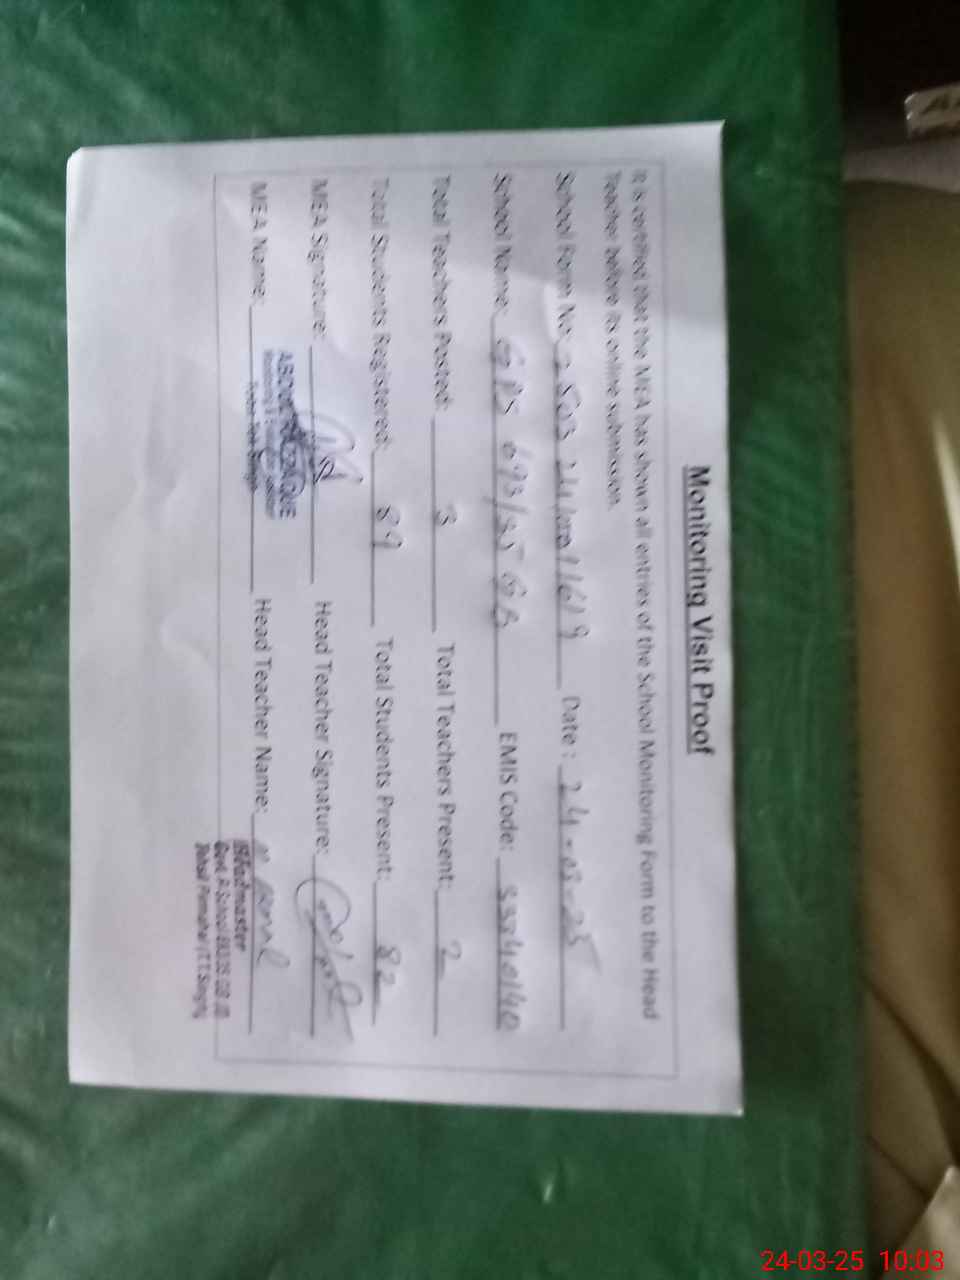 Monitoring Visit Proof
It is certified that the MEA has shown all entries of the School Monitoring Form to the Head
Teacher before its online submission.
School Form No: Date: 24-03-25
School Name: GPS 693/35 GB EMIS Code: 33340140
Total Teachers Posted: 3 Total Teachers Present: 2
Total Students Registered: 89 Total Students Present: 82
MEA Signature: Head Teacher Signature:
MEA Name: Head Teacher Name:
Headmaster
24-03-25 10:03